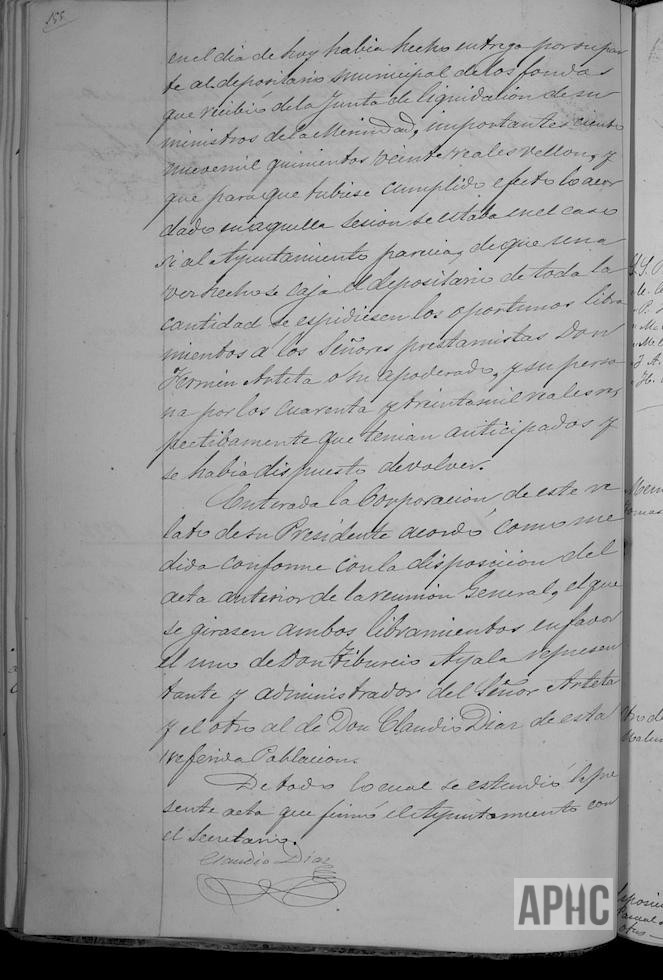 155
en el dia de hoy habia hecho entrega por su par
te al depositario municipal de los fondos
que recibió de la Junta de liquidacion de su
ministros de la Merindad, importantes ciento
nueve mil quinientos veinte reales vellon, y
que para que tubiese cumplido efecto lo acor
dado en aquella sesion se estaba en el caso
si al Ayuntamiento parecia, de que una
vez hecho se caja el depositario de toda la
cantidad se espidiesen los oportunos libra
mientos a los Señores prestamistas Don
Fermin Arteta o su apoderado, y su perso
na por los cuarenta y treinta mil reales res
pectibamente que tenian anticipados y
se habia dispuesto devolver.
Enterada la Corporacion de este re
lato de su Presidente acordó como me
dida conforme con la disposicion del
acta anterior de la reunion General, el que
se girasen ambos libramientos en favor
el uno de Don Tiburcio Ayala represen
tante y administrador del Señor Arteta
y el otro al de Don Claudio Diaz de esta
referida Poblacion.
De todo lo cual se estendió la pre
sente acta que firmó el Ayuntamiento con
el Secretario.
Claudio Diaz
APHC